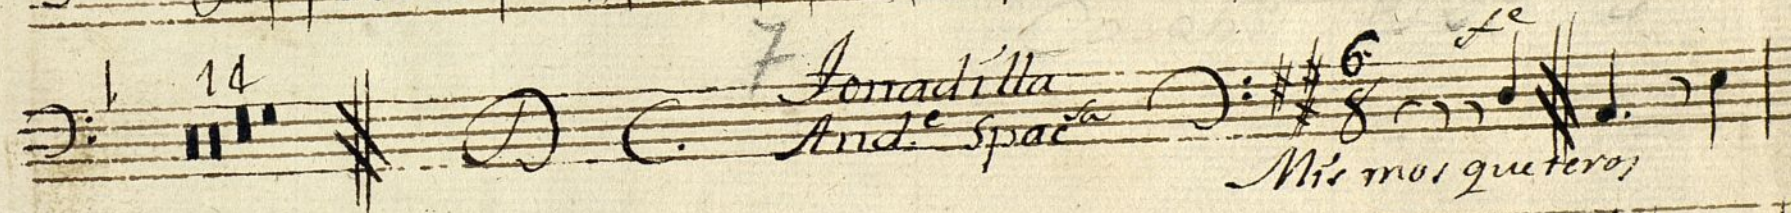 14
D C.
7
Tonadilla
And.e Spac.sa
6
8
fe
Mis mosqueteros